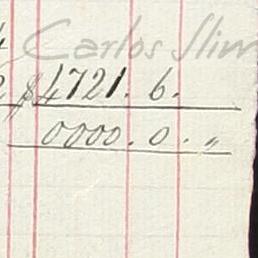 Carlos Slim
$4721. 6.
0000. 0. „